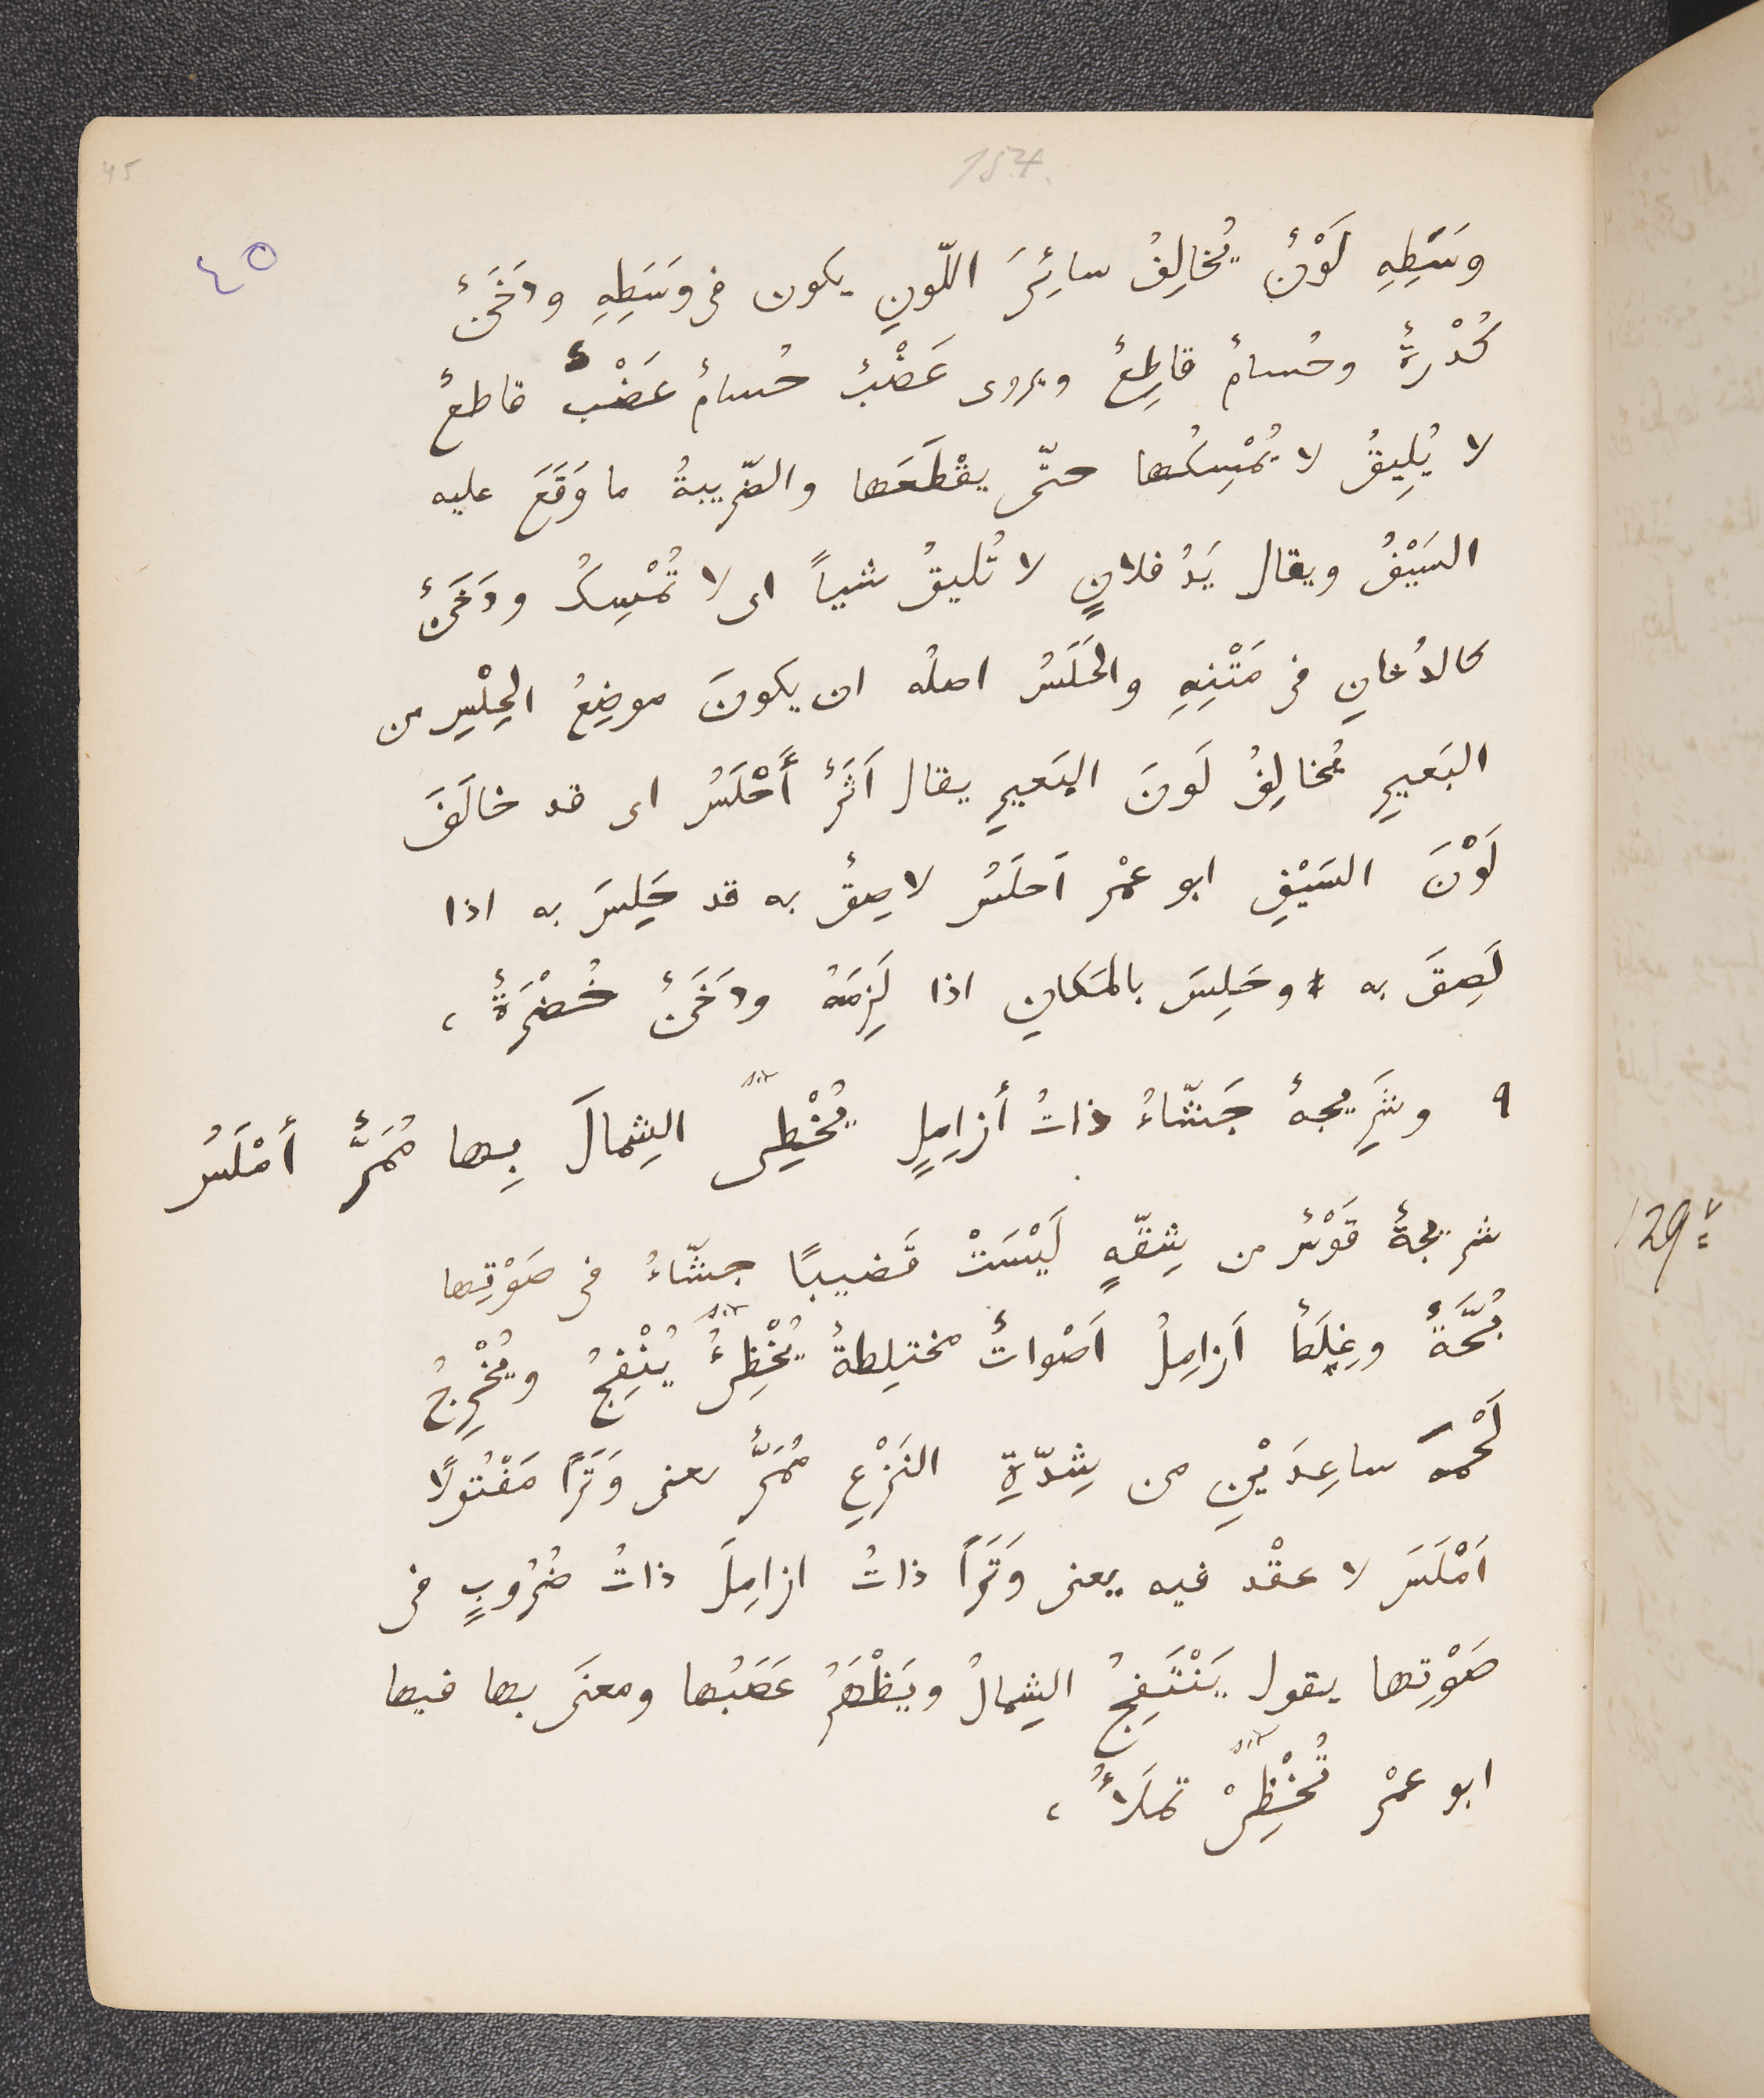 45
154.
٤٥
وَسَطِهِ لَوْنٌ يُخالِفُ سائِرَ اللّونِ يكون فى وَسَطِهِ ودَخَنٌ
كُدْرةٌ وحُسامٌ قاطِعٌ ويروى عَضْبٌ حُسامٌ عَضْبٌ قاطعٌ
لا يُلِيقُ لا يُمْسِكُها حتّى يقْطَعَها والضّريبةُ ما وَقَعَ عليه
السَيْفُ ويقال يَدُ فلانٍ لا تُليقُ شياً اى لا تُمْسِكُ ودَخَنٌ
كالدُخانِ فى مَتْنِهِ والحَلَسُ اصلُه ان يكونَ موضِعُ الحِلْسِ من
البَعيرِ يُخالِفُ لَونَ البَعيرِ يقال اَثَرٌ أَحْلَسُ اى قد خالَفَ
لَوْنَ السَيْفِ ابو عمْرٍ اَحلَسُ لاصِقٌ به قد حَلِسَ به اذا
لَصِقَ به وحَلِسَ بالمَكانِ اذا لَزِمَهُ ودَخَنٌ خُضْرَةٌ ،
٩ وشَرِيجهٌ جَشّاءُ ذاتُ أزامِلٍ يُخْظِى الشِمالَ بِها مُمَرٌّ أمْلَسُ
شريجةٌ قَوْسٌ من شِقّهٍ لَيْسَتْ قَضيبًا جشّاءُ فى صَوْتِها
بُحَّةٌ وغِلَظٌ اَزامِلُ اَصْواتٌ مختلِطةٌ يُخْظِىُ يُنْفِجُ ويُخْرِجُ
لَحْمَ ساعِدَيْنِ من شِدّةِ النَزْعِ مُمَرٌّ يعنى وَتَرًا مَفْتُولًا
اَمْلَسَ لا عقْد فيه يعنى وَتَرًا ذاتُ ازامِلَ ذاتُ ضُرُوبٍ فى
صَوْتِها يقول يَنْتَفِجُ الشِمالُ ويَظْهَرُ عَصَبُها ومعنَى بها فيها
ابو عمْرٍ تُخْظِى تملَأُ ،
129 v